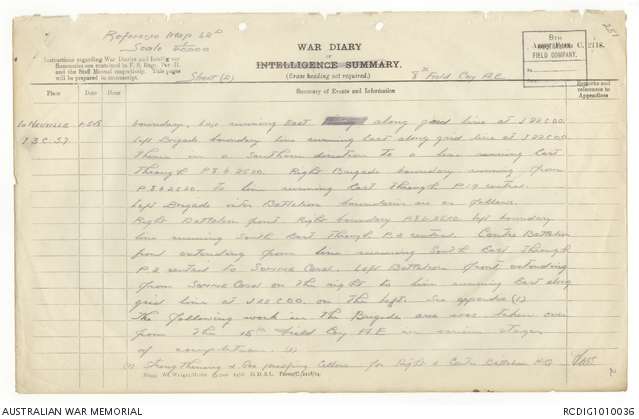 Reference Map 62D
Scale 1/40000
Sheet (2)
WAR DIARY
or
INTELLIGENCE SUMMARY.
(Erase heading not required.)
8th Field Coy A.E.
8TH
FIELD COMPANY.
Army Form C. 2118.
251
Instructions regarding War Diaries and Intelligence
Summaries are contained in F. S. Regs., Part II.
and the Staff Manual respectively. Title pages
will be prepared in manuscript.
Place
Date
Hour
Summary of Events and Information
Remarks and
references to
Appendices
boundary, line running East along grid line at J22C00.
Left Brigade boundary line running East along grid line at J22C00
thence in a Southern direction to a line running East
through P.8.b.25.50. Right Brigade boundary running from
P.8.b.25.50. to line running East through P.19 central.
Left Brigade inter Battalion boundaries are as follows.
Right Battalion front. Right boundary P.8.b.25.50 left boundary
line running South East through P.2 central. Centre Battalion
front extending from line running South East through
P.2 central to Somme Canal. Left Battalion front extending
from Somme Canal on the right to line running East along
grid line at J22C00. on the left. See appendix (1).
The following work in the Brigade area was taken over
from the 15th Field Coy A.E. in various stages
of completion. (1)
(1) Strengthening & Gas proofing Cellars for Right & Centre Battalion H.Q.
2
AUSTRALIAN WAR MEMORIAL
RCDIG1010036